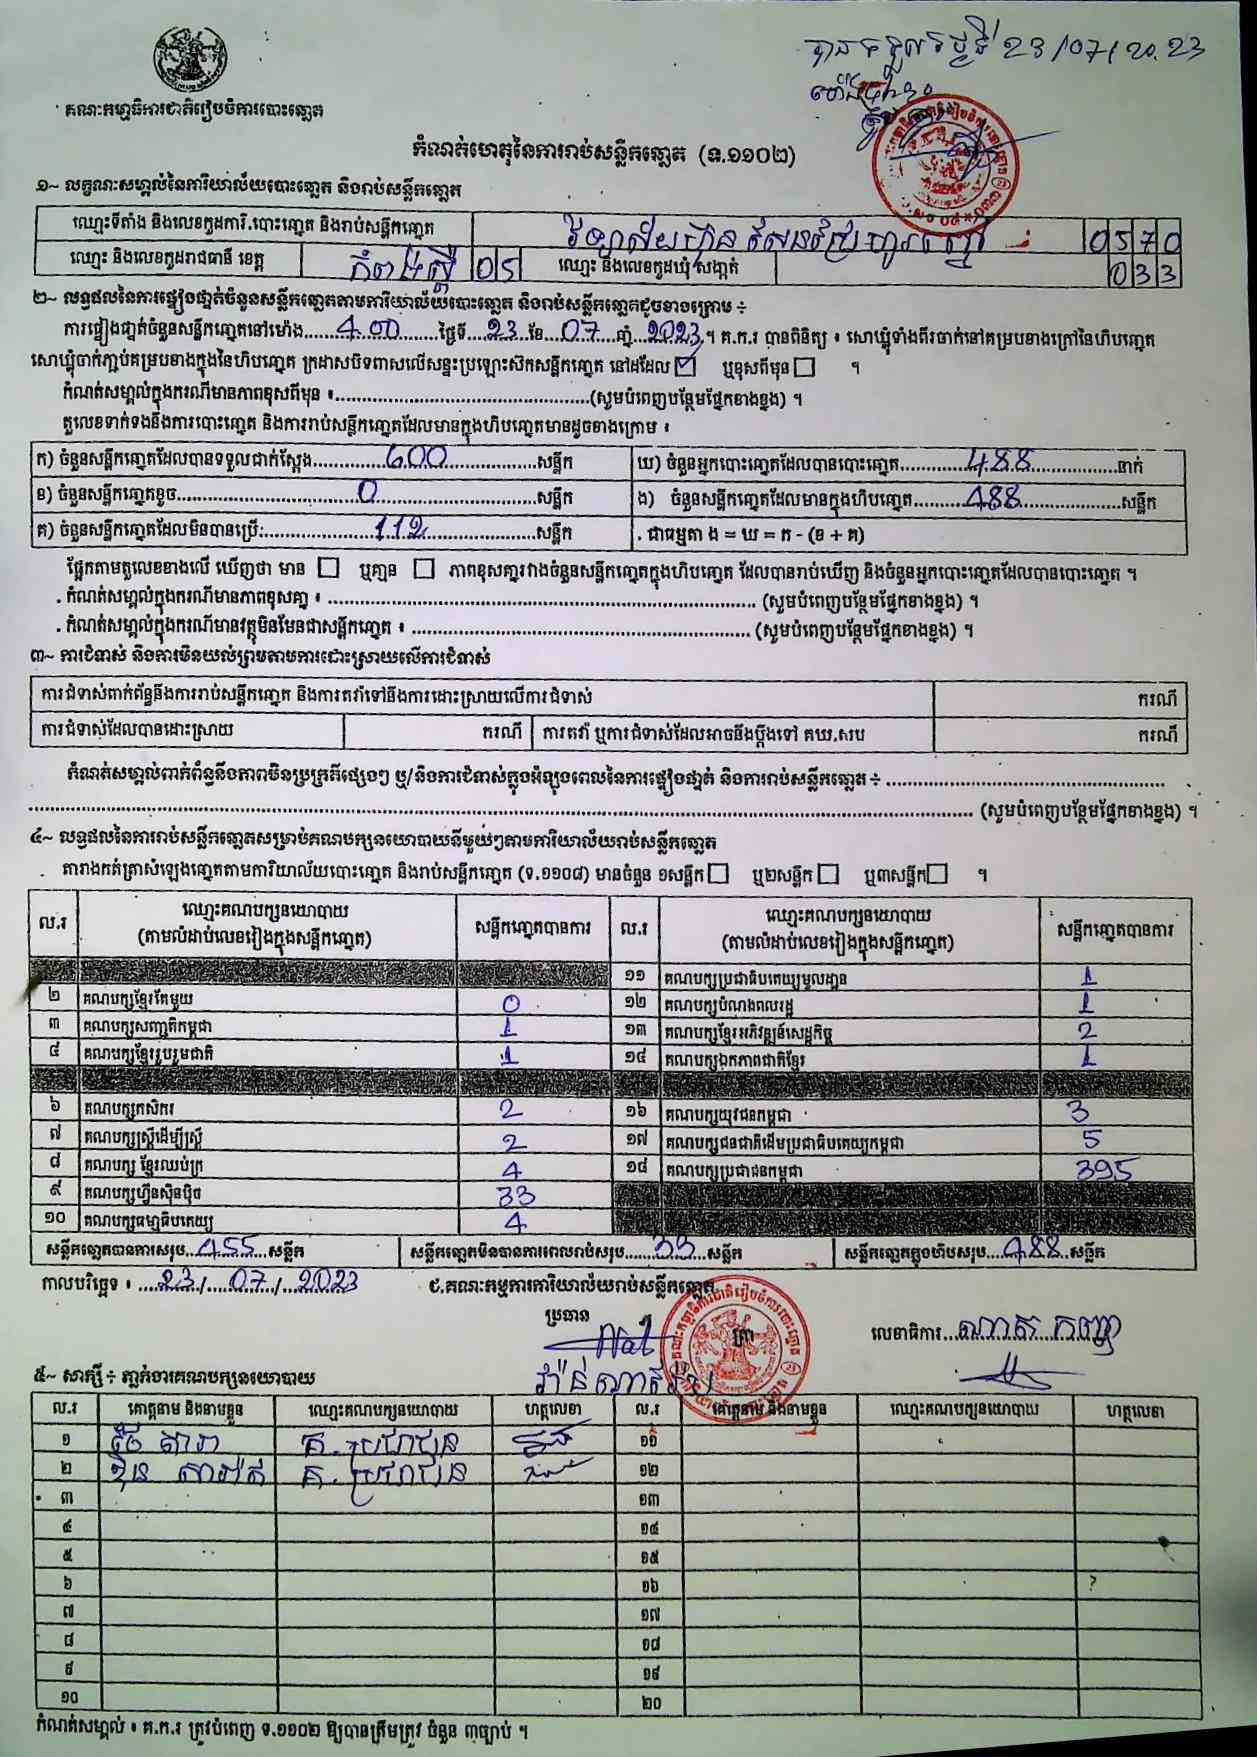 បានទទួលថ្ងៃទី 23/07/2023
គណៈកម្មាធិការជាតិរៀបចំការបោះឆ្នោត
កំណត់ហេតុនៃការរាប់សន្លឹកឆ្នោត (ទ.១១០២)
១~ លក្ខណៈសម្គាល់នៃការិយាល័យបោះឆ្នោត និងរាប់សន្លឹកឆ្នោត
ឈ្មោះទីតាំង និងលេខកូដការិ.បោះឆ្នោត និងរាប់សន្លឹកឆ្នោត វិទ្យាល័យ ហ៊ុន សែន 0570
ឈ្មោះ និងលេខកូដរាជធានី ខេត្ត កំពង់ស្ពឺ 05 ឈ្មោះ និងលេខកូដឃុំ សង្កាត់ 033
២~ លទ្ធផលនៃការផ្ទៀងផ្ទាត់ចំនួនសន្លឹកឆ្នោតតាមការិយាល័យបោះឆ្នោត និងរាប់សន្លឹកឆ្នោតដូចខាងក្រោម ÷
ការផ្ទៀងផ្ទាត់ចំនួនសន្លឹកឆ្នោតនៅម៉ោង 4.00 ថ្ងៃទី 23 ខែ 07 ឆ្នាំ 2023 ។ គ.ក.រ បានពិនិត្យ ៖ សោឃ្លុំទាំងពីរចាក់នៅគម្របខាងក្រៅនៃហិបឆ្នោត
សោឃ្លុំចាក់ភ្ជាប់គម្របខាងក្នុងនៃហិបឆ្នោត ក្រដាសបិទពាសលើសន្ទះប្រឡោះស៊កសន្លឹកឆ្នោត នៅដដែល ☑ ឬខុសពីមុន ☐ ។
កំណត់សម្គាល់ក្នុងករណីមានភាពខុសពីមុន ៖ (សូមបំពេញបន្ថែមផ្នែកខាងខ្នង) ។
តួលេខទាក់ទងនឹងការបោះឆ្នោត និងការរាប់សន្លឹកឆ្នោតដែលមានក្នុងហិបឆ្នោតមានដូចខាងក្រោម ៖
ក) ចំនួនសន្លឹកឆ្នោតដែលបានទទួលជាក់ស្តែង 600 សន្លឹក ឃ) ចំនួនអ្នកបោះឆ្នោតដែលបានបោះឆ្នោត 488 នាក់
ខ) ចំនួនសន្លឹកឆ្នោតខូច 0 សន្លឹក ង) ចំនួនសន្លឹកឆ្នោតដែលមានក្នុងហិបឆ្នោត 488 សន្លឹក
គ) ចំនួនសន្លឹកឆ្នោតដែលមិនបានប្រើ: 112 សន្លឹក . ជាធម្មតា ង = ឃ = ក - (ខ + គ)
ផ្អែកតាមតួលេខខាងលើ ឃើញថា មាន ☐ ឬគ្មាន ☐ ភាពខុសគ្នារវាងចំនួនសន្លឹកឆ្នោតក្នុងហិបឆ្នោត ដែលបានរាប់ឃើញ និងចំនួនអ្នកបោះឆ្នោតដែលបានបោះឆ្នោត ។
. កំណត់សម្គាល់ក្នុងករណីមានភាពខុសគ្នា ៖ (សូមបំពេញបន្ថែមផ្នែកខាងខ្នង) ។
. កំណត់សម្គាល់ក្នុងករណីមានវត្ថុមិនមែនជាសន្លឹកឆ្នោត ៖ (សូមបំពេញបន្ថែមផ្នែកខាងខ្នង) ។
៣~ ការជំទាស់ និងការមិនយល់ព្រមតាមការដោះស្រាយលើការជំទាស់
ការជំទាស់ពាក់ព័ន្ធនឹងការរាប់សន្លឹកឆ្នោត និងការតវ៉ាទៅនឹងការដោះស្រាយលើការជំទាស់ ករណី
ការជំទាស់ដែលបានដោះស្រាយ ករណី ការតវ៉ា ឬការជំទាស់ដែលអាចនឹងប្តឹងទៅ គឃ.សប ករណី
កំណត់សម្គាល់ពាក់ព័ន្ធនឹងភាពមិនប្រក្រតីផ្សេងៗ ឬ/និងការជំទាស់ក្នុងអំឡុងពេលនៃការផ្ទៀងផ្ទាត់ និងការរាប់សន្លឹកឆ្នោត ÷
(សូមបំពេញបន្ថែមផ្នែកខាងខ្នង) ។
៤~ លទ្ធផលនៃការរាប់សន្លឹកឆ្នោតសម្រាប់គណបក្សនយោបាយនីមួយៗតាមការិយាល័យរាប់សន្លឹកឆ្នោត
តារាងកត់ត្រាសំឡេងឆ្នោតតាមការិយាល័យបោះឆ្នោត និងរាប់សន្លឹកឆ្នោត (ទ.១១០៨) មានចំនួន ១សន្លឹក ☐ ឬ២សន្លឹក ☐ ឬ៣សន្លឹក ☐ ។
ល.រ ឈ្មោះគណបក្សនយោបាយ (តាមលំដាប់លេខរៀងក្នុងសន្លឹកឆ្នោត) សន្លឹកឆ្នោតបានការ ល.រ ឈ្មោះគណបក្សនយោបាយ (តាមលំដាប់លេខរៀងក្នុងសន្លឹកឆ្នោត) សន្លឹកឆ្នោតបានការ
១១ គណបក្សប្រជាធិបតេយ្យមូលដ្ឋាន 1
២ គណបក្សខ្មែរតែមួយ 0 ១២ គណបក្សបំណងពលរដ្ឋ 1
៣ គណបក្សសញ្ជាតិកម្ពុជា 1 ១៣ គណបក្សខ្មែរអភិវឌ្ឍន៍សេដ្ឋកិច្ច 2
៤ គណបក្សខ្មែររួបរួមជាតិ 1 ១៤ គណបក្សឯកភាពជាតិខ្មែរ 1
៦ គណបក្សកសិករ 2 ១៦ គណបក្សយុវជនកម្ពុជា 3
៧ គណបក្សស្ត្រីដើម្បីស្ត្រី 2 ១៧ គណបក្សជនជាតិដើមប្រជាធិបតេយ្យកម្ពុជា 5
៨ គណបក្ស ខ្មែរឈប់ក្រ 4 ១៨ គណបក្សប្រជាជនកម្ពុជា 395
៩ គណបក្សហ្វ៊ុនស៊ិនប៉ិច 33
១០ គណបក្សធម្មាធិបតេយ្យ 4
សន្លឹកឆ្នោតបានការសរុប 455 សន្លឹក សន្លឹកឆ្នោតមិនបានការពេលរាប់សរុប 33 សន្លឹក សន្លឹកឆ្នោតក្នុងហិបសរុប 488 សន្លឹក
កាលបរិច្ឆេទ ៖ 23/07/2023 ជ.គណៈកម្មការការិយាល័យរាប់សន្លឹកឆ្នោត
ប្រធាន លេខាធិការ
៥~ សាក្សី ÷ ភ្នាក់ងារគណបក្សនយោបាយ
ល.រ គោត្តនាម និងនាមខ្លួន ឈ្មោះគណបក្សនយោបាយ ហត្ថលេខា ល.រ គោត្តនាម និងនាមខ្លួន ឈ្មោះគណបក្សនយោបាយ ហត្ថលេខា
១ តារា គ.ប្រជាជន ១១
២ គ.ប្រជាជន ១២
៣ ១៣
៤ ១៤
៥ ១៥
៦ ១៦
៧ ១៧
៨ ១៨
៩ ១៩
១០ ២០
កំណត់សម្គាល់ ៖ គ.ក.រ ត្រូវបំពេញ ទ.១១០២ ឱ្យបានត្រឹមត្រូវ ចំនួន ៣ច្បាប់ ។